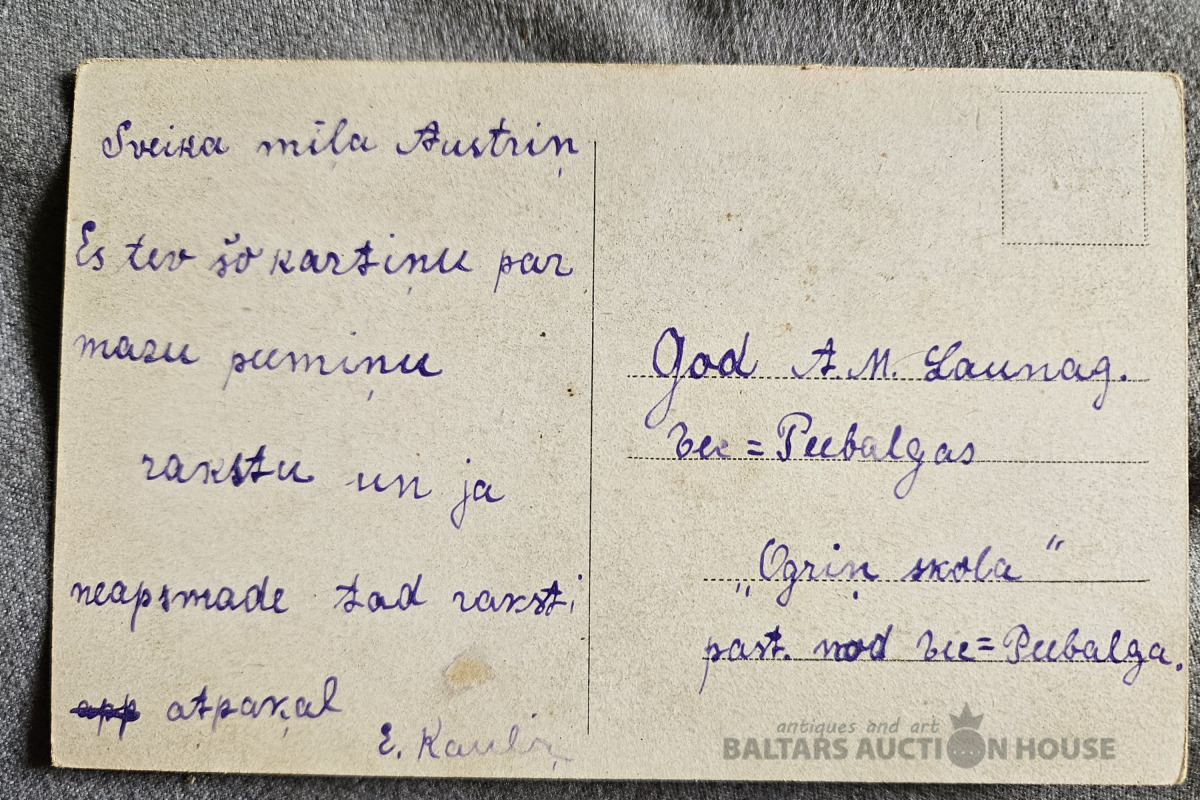 Sveika mīla Austriņ
Es tev šo kartiņu par
mazu piemiņu
rakstu un ja
neapsmade tad raksti
app atpakaļ
E. Kauliņ
God A. M. Launag.
Vec=Piebalgas
„Ogriņ skola“
past. nod Vec=Piebalga.
antiques and art
BALTARS AUCTION HOUSE